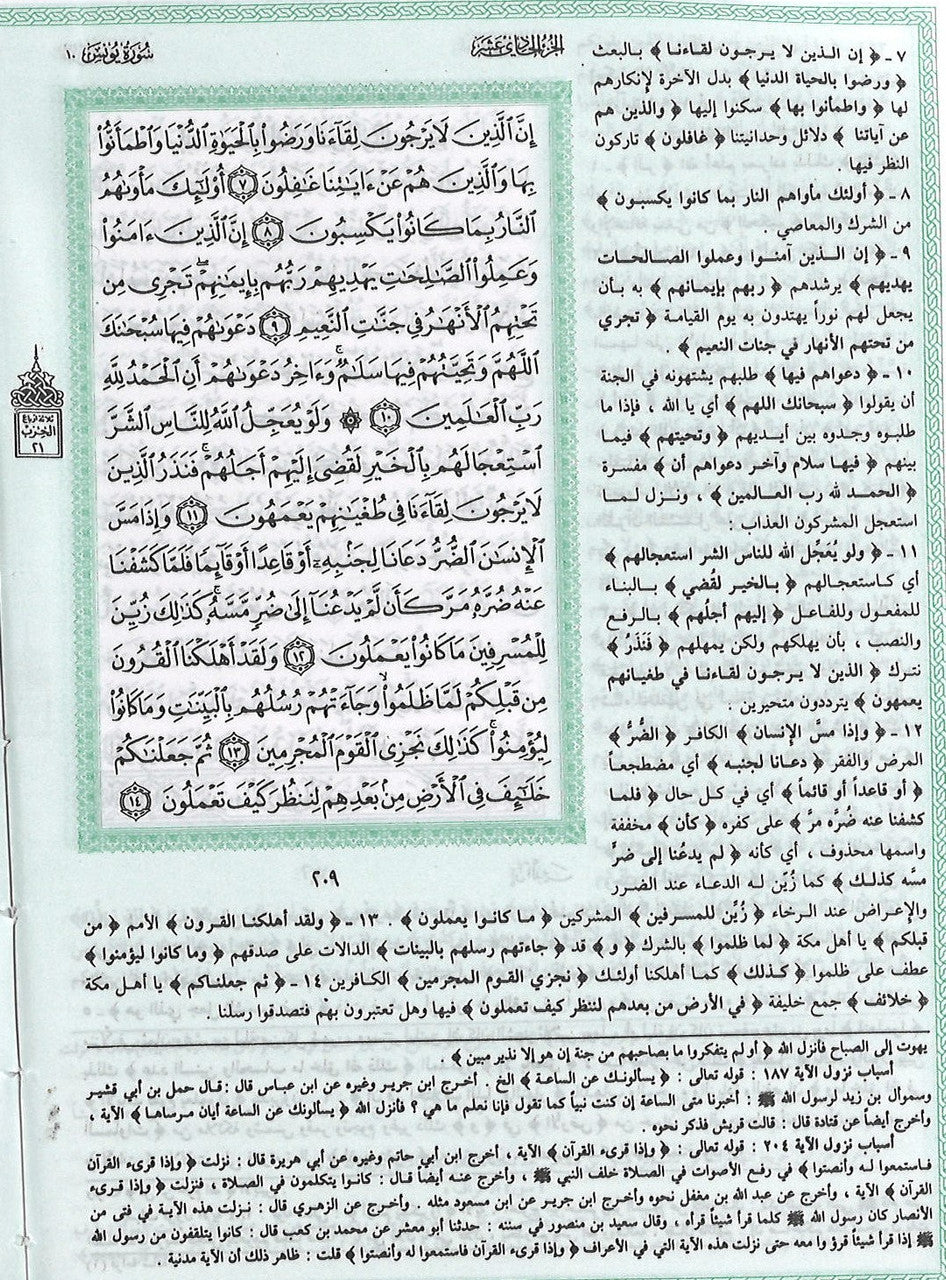 الجزء الحادي عشر
سورة يونس ١٠
إِنَّ ٱلَّذِينَ لَا يَرْجُونَ لِقَآءَنَا وَرَضُوا۟ بِٱلْحَيَوٰةِ ٱلدُّنْيَا وَٱطْمَأَنُّوا۟
بِهَا وَٱلَّذِينَ هُمْ عَنْ ءَايَـٰتِنَا غَـٰفِلُونَ ٧ أُو۟لَـٰٓئِكَ مَأْوَىٰهُمُ
ٱلنَّارُ بِمَا كَانُوا۟ يَكْسِبُونَ ٨ إِنَّ ٱلَّذِينَ ءَامَنُوا۟
وَعَمِلُوا۟ ٱلصَّـٰلِحَـٰتِ يَهْدِيهِمْ رَبُّهُم بِإِيمَـٰنِهِمْ ۖ تَجْرِى مِن
تَحْتِهِمُ ٱلْأَنْهَـٰرُ فِى جَنَّـٰتِ ٱلنَّعِيمِ ٩ دَعْوَىٰهُمْ فِيهَا سُبْحَـٰنَكَ
ٱللَّهُمَّ وَتَحِيَّتُهُمْ فِيهَا سَلَـٰمٌ ۚ وَءَاخِرُ دَعْوَىٰهُمْ أَنِ ٱلْحَمْدُ لِلَّهِ
رَبِّ ٱلْعَـٰلَمِينَ ١٠ ۞ وَلَوْ يُعَجِّلُ ٱللَّهُ لِلنَّاسِ ٱلشَّرَّ
ٱسْتِعْجَالَهُم بِٱلْخَيْرِ لَقُضِىَ إِلَيْهِمْ أَجَلُهُمْ ۖ فَنَذَرُ ٱلَّذِينَ
لَا يَرْجُونَ لِقَآءَنَا فِى طُغْيَـٰنِهِمْ يَعْمَهُونَ ١١ وَإِذَا مَسَّ
ٱلْإِنسَـٰنَ ٱلضُّرُّ دَعَانَا لِجَنۢبِهِۦٓ أَوْ قَاعِدًا أَوْ قَآئِمًا فَلَمَّا كَشَفْنَا
عَنْهُ ضُرَّهُۥ مَرَّ كَأَن لَّمْ يَدْعُنَآ إِلَىٰ ضُرٍّ مَّسَّهُۥ ۚ كَذَٰلِكَ زُيِّنَ
لِلْمُسْرِفِينَ مَا كَانُوا۟ يَعْمَلُونَ ١٢ وَلَقَدْ أَهْلَكْنَا ٱلْقُرُونَ
مِن قَبْلِكُمْ لَمَّا ظَلَمُوا۟ ۙ وَجَآءَتْهُمْ رُسُلُهُم بِٱلْبَيِّنَـٰتِ وَمَا كَانُوا۟
لِيُؤْمِنُوا۟ ۚ كَذَٰلِكَ نَجْزِى ٱلْقَوْمَ ٱلْمُجْرِمِينَ ١٣ ثُمَّ جَعَلْنَـٰكُمْ
خَلَـٰٓئِفَ فِى ٱلْأَرْضِ مِنۢ بَعْدِهِمْ لِنَنظُرَ كَيْفَ تَعْمَلُونَ ١٤
ثلاثة أرباع
الحزب
٢١
٢٠٩
٧ ـ ﴿ إن الذين لا يرجون لقاءنا ﴾ بالبعث
﴿ ورضوا بالحياة الدنيا ﴾ بدل الآخرة لإنكارهم
لها ﴿ واطمأنوا بها ﴾ سكنوا إليها ﴿ والذين هم
عن آياتنا ﴾ دلائل وحدانيتنا ﴿ غافلون ﴾ تاركون
النظر فيها .
٨ ـ ﴿ أولئك مأواهم النار بما كانوا يكسبون ﴾
من الشرك والمعاصي .
٩ ـ ﴿ إن الذين آمنوا وعملوا الصالحات
يهديهم ﴾ يرشدهم ﴿ ربهم بإيمانهم ﴾ به بأن
يجعل لهم نوراً يهتدون به يوم القيامة ﴿ تجري
من تحتهم الأنهار في جنات النعيم ﴾ .
١٠ ـ ﴿ دعواهم فيها ﴾ طلبهم يشتهونه في الجنة
أن يقولوا ﴿ سبحانك اللهم ﴾ أي يا الله ، فإذا ما
طلبوه وجدوه بين أيديهم ﴿ وتحيتهم ﴾ فيما
بينهم ﴿ فيها سلام وآخر دعواهم أن ﴾ مفسرة
﴿ الحمد لله رب العالمين ﴾ ، ونزل لما
استعجل المشركون العذاب :
١١ ـ ﴿ ولو يُعَجِّل الله للناس الشر استعجالهم ﴾
أي كاستعجالهم ﴿ بالخير لقُضي ﴾ بالبناء
للمفعول وللفاعل ﴿ إليهم أجلُهم ﴾ بالرفع
والنصب ، بأن يهلكهم ولكن يمهلهم ﴿ فَنَذَرُ ﴾
نترك ﴿ الذين لا يرجون لقاءنا في طغيانهم
يعمهون ﴾ يترددون متحيرين .
١٢ ـ ﴿ وإذا مسَّ الإنسان ﴾ الكافر ﴿ الضُّرُّ ﴾
المرض والفقر ﴿ دعانا لجنبه ﴾ أي مضطجعاً
﴿ أو قاعداً أو قائماً ﴾ أي في كل حال ﴿ فلما
كشفنا عنه ضُرَّه مرَّ ﴾ على كفره ﴿ كأن ﴾ مخففة
واسمها محذوف ، أي كأنه ﴿ لم يدعُنا إلى ضرٍّ
مسَّه كذلك ﴾ كما زُيِّن له الدعاء عند الضرر
والإعراض عند الرخاء ﴿ زُيِّن للمسرفين ﴾ المشركين ﴿ ما كانوا يعملون ﴾ . ١٣ ـ ﴿ ولقد أهلكنا القرون ﴾ الأمم ﴿ من
قبلكم ﴾ يا أهل مكة ﴿ لما ظلموا ﴾ بالشرك ﴿ و ﴾ قد ﴿ جاءتهم رسلهم بالبينات ﴾ الدالات على صدقهم ﴿ وما كانوا ليؤمنوا ﴾
عطف على ظلموا ﴿ كذلك ﴾ كما أهلكنا أولئك ﴿ نجزي القوم المجرمين ﴾ الكافرين ١٤ ـ ﴿ ثم جعلناكم ﴾ يا أهل مكة
﴿ خلائف ﴾ جمع خليفة ﴿ في الأرض من بعدهم لننظر كيف تعملون ﴾ فيها وهل تعتبرون بهم فتصدقوا رسلنا .
يهوت إلى الصباح فأنزل الله ﴿ أو لم يتفكروا ما بصاحبهم من جنة إن هو إلا نذير مبين ﴾ .
أسباب نزول الآية ١٨٧ : قوله تعالى : ﴿ يسألونك عن الساعة ﴾ الخ . أخرج ابن جرير وغيره عن ابن عباس قال : قال حمل بن أبي قشير
وسموأل بن زيد لرسول الله ﷺ : أخبرنا متى الساعة إن كنت نبياً كما تقول فإنا نعلم ما هي ؟ فأنزل الله ﴿ يسألونك عن الساعة أيان مرساها ﴾ الآية ،
وأخرج أيضاً عن قتادة قال : قالت قريش فذكر نحوه .
أسباب نزول الآية ٢٠٤ : قوله تعالى : ﴿ وإذا قرىء القرآن ﴾ الآية ، أخرج ابن أبي حاتم وغيره عن أبي هريرة قال : نزلت ﴿ وإذا قرىء القرآن
فاستمعوا له وأنصتوا ﴾ في رفع الأصوات في الصلاة خلف النبي ﷺ ، وأخرج عنه أيضاً قال : كانوا يتكلمون في الصلاة ، فنزلت ﴿ وإذا قرىء
القرآن ﴾ الآية ، وأخرج عن عبد الله بن مغفل نحوه وأخرج ابن جرير عن ابن مسعود مثله . وأخرج عن الزهري قال : نزلت هذه الآية في فتى من
الأنصار كان رسول الله ﷺ كلما قرأ شيئاً قرأه ، وقال سعيد بن منصور في سننه : حدثنا أبو معشر عن محمد بن كعب قال : كانوا يتلقفون من رسول الله
ﷺ إذا قرأ شيئاً قرؤ وا معه حتى نزلت هذه الآية التي في الأعراف ﴿ وإذا قرىء القرآن فاستمعوا له وأنصتوا ﴾ قلت : ظاهر ذلك أن الآية مدنية .